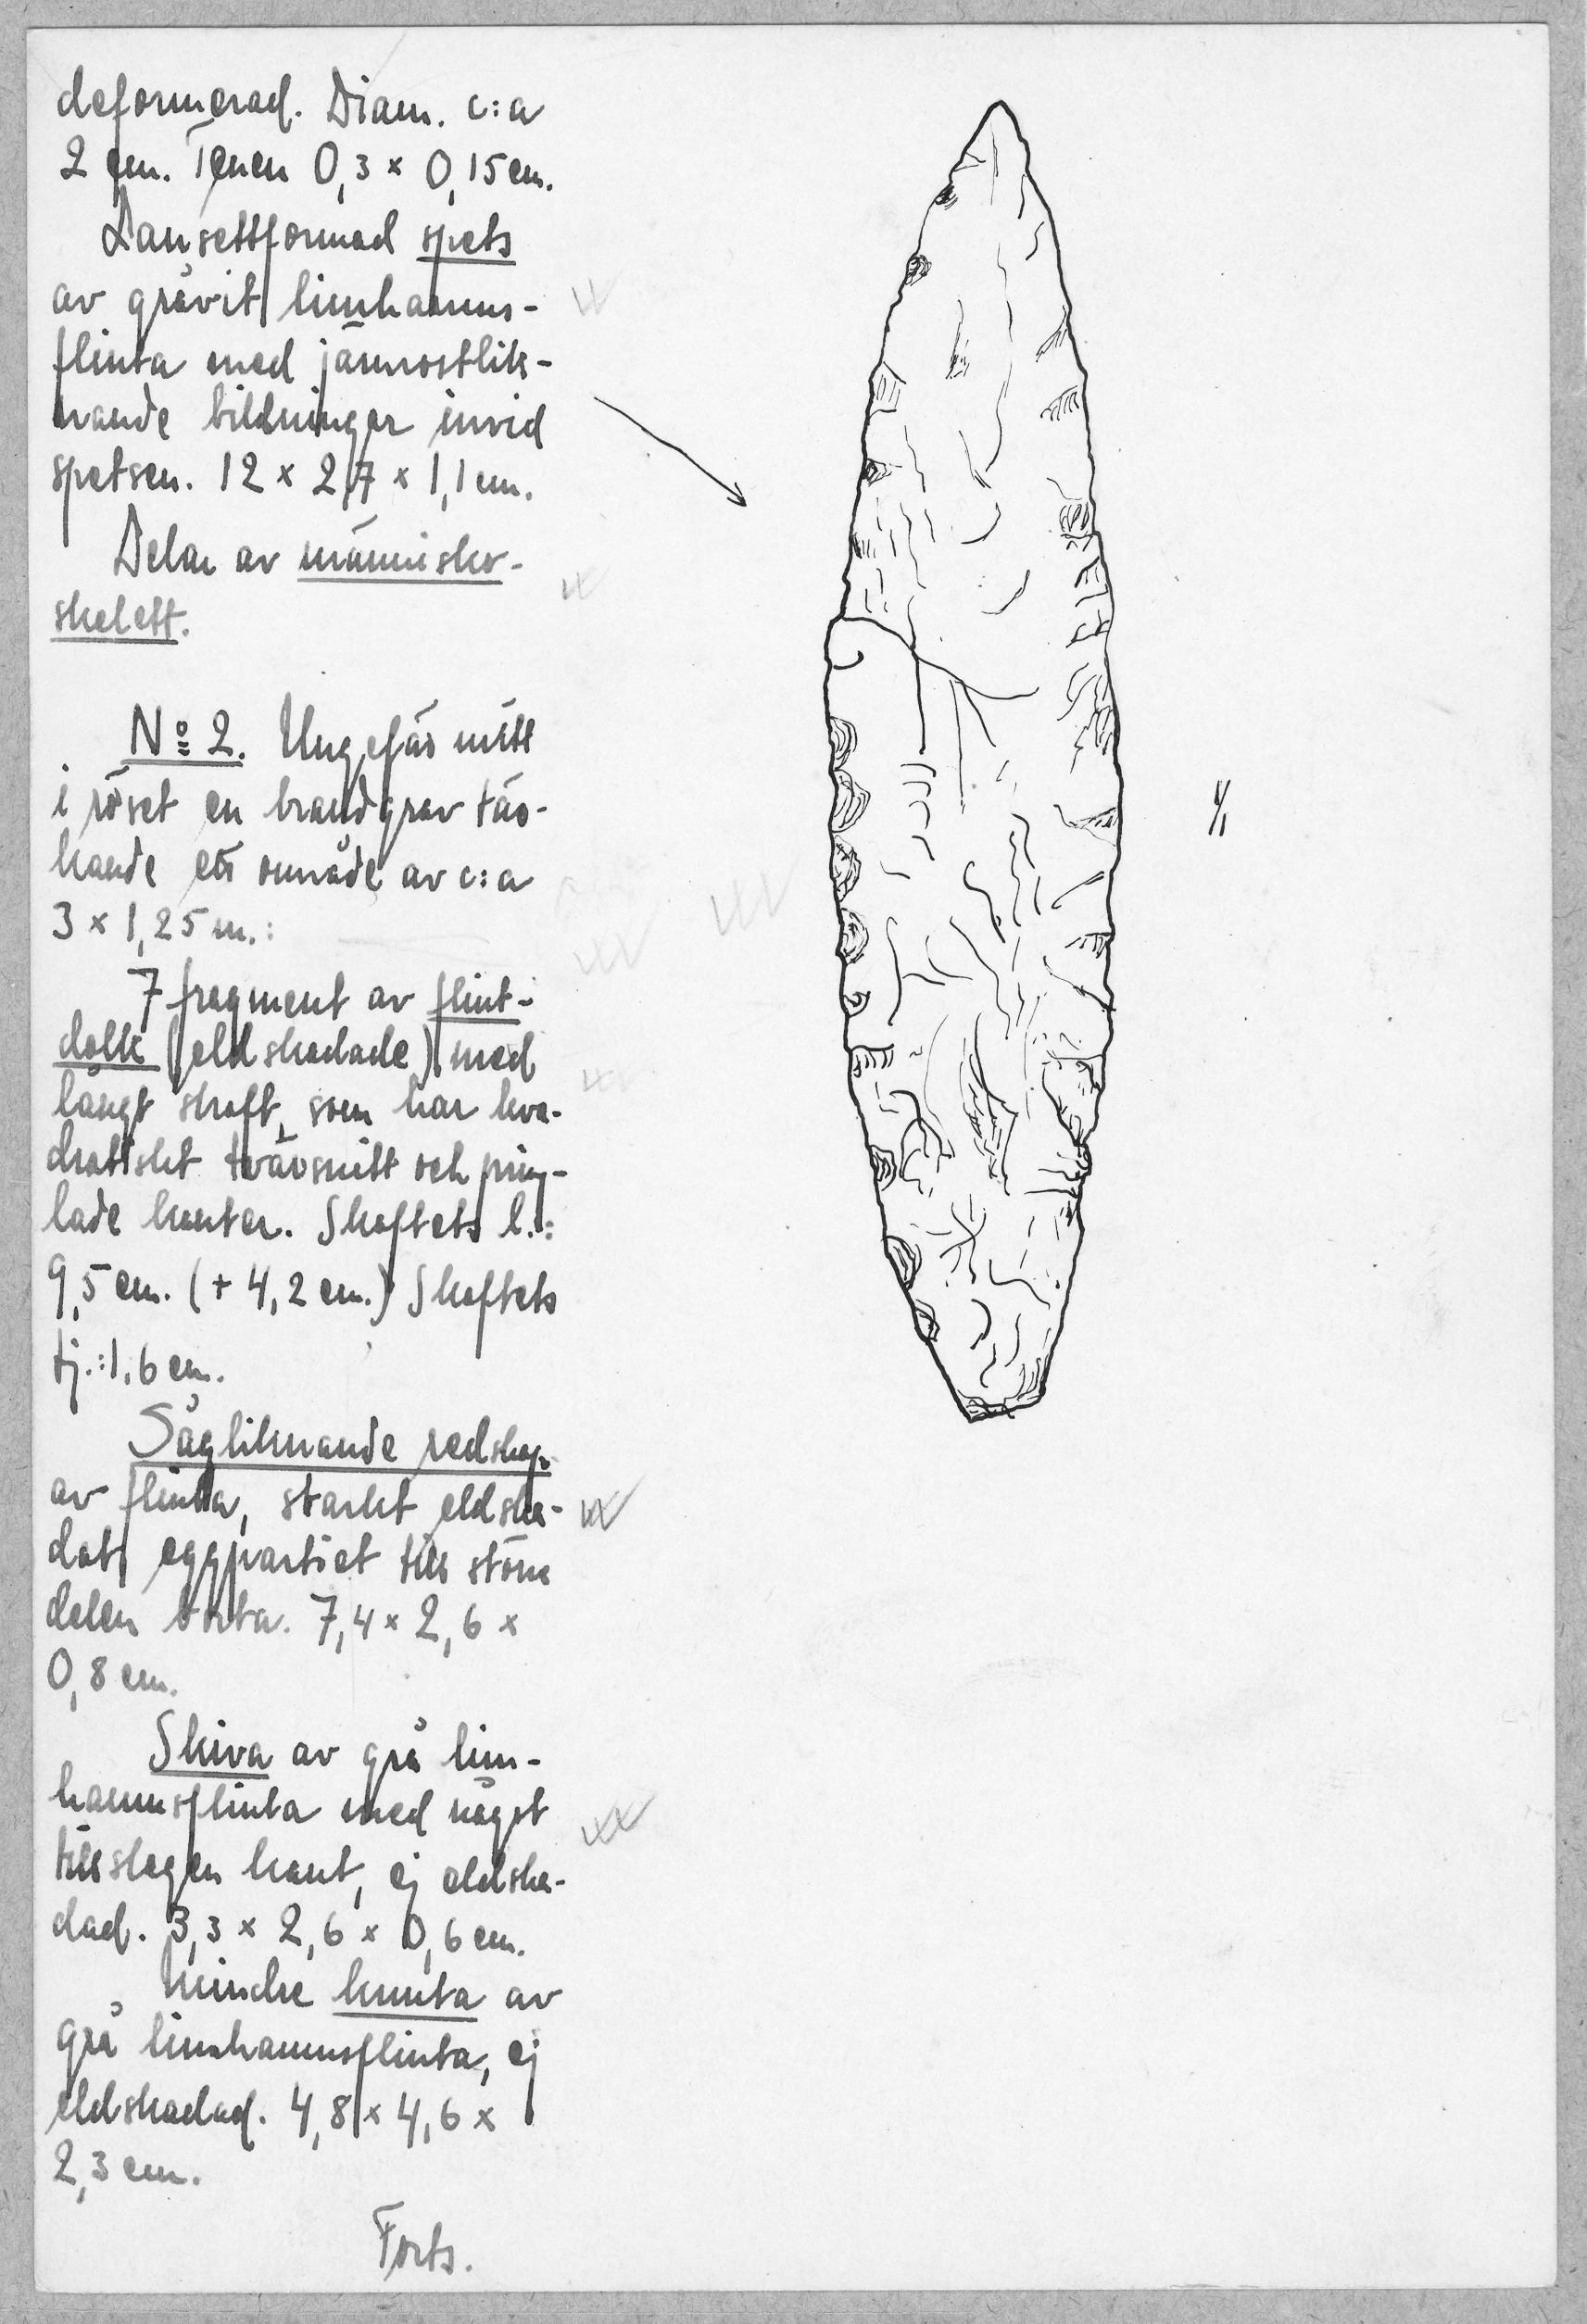 deformerad. Diam. c:a
2 cm. Tenen 0,3 × 0,15 cm.
Lansettformad spets
av gråvit limhamns-
flinta med järnrostlik-
nande bildningar invid
spetsen. 12 × 2,7 × 1,1 cm.
Delar av människo-
skelett.
No 2. Ungefär mitt
i röset en brandgrav täc-
kande ett område av c:a
3 × 1,25 m.:
7 fragment av flint-
dolk (eldskadade) med
långt skaft, som har kva-
dratiskt tvärsnitt och präg-
lade kanter. Skaftets l.:
9,5 cm. (+ 4,2 cm.) Skaftets
tj.: 1,6 cm.
Sågliknande redskap
av flinta, starkt eldska-
dat, eggpartiet till större
delen borta. 7,4 × 2,6 ×
0,8 cm.
Skiva av grå lim-
hamnsflinta med något
tillslagen kant, ej eldska-
dad. 3,3 × 2,6 × 0,6 cm.
Mindre knuta av
grå limhamnsflinta, ej
eldskadad. 4,8 × 4,6 ×
2,3 cm.
Forts.
1/1